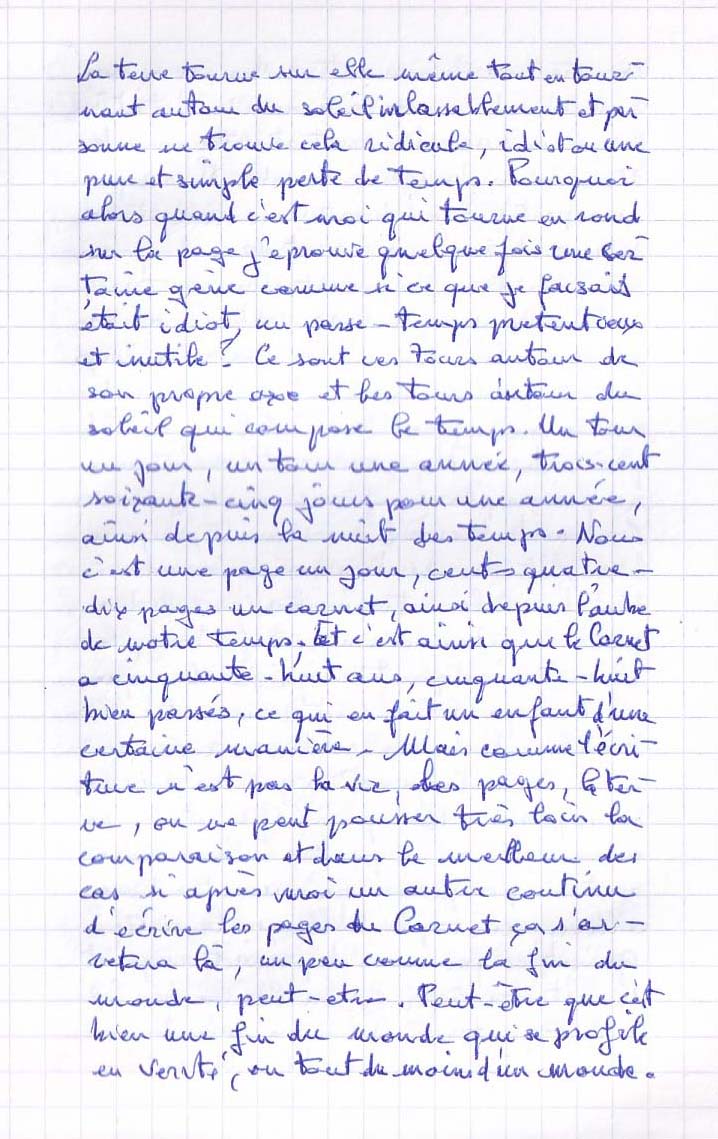 La terre tourne sur elle même tout en tour-
nant autour du soleil inlassablement et per-
sonne ne trouve cela ridicule, idiot ou une
pure et simple perte de temps. Pourquoi
alors quand c'est moi qui tourne en rond
sur la page j'éprouve quelque fois une cer-
taine gêne comme si ce que je faisais
était idiot, un passe-temps prétentieux
et inutile ? Ce sont ces tours autour de
son propre axe et les tours autour du
soleil qui compose le temps. Un tour
un jour, un tour une année, trois-cent
soixante-cinq jours pour une année,
ainsi depuis la nuit des temps. Nous
c'est une page un jour, cent-quatre-
dix pages un carnet, ainsi depuis l'aube
de notre temps. Et c'est ainsi que le Carnet
a cinquante-huit ans, cinquante-huit
bien passés, ce qui en fait un enfant d'une
certaine manière. Mais comme l'écri-
ture n'est pas la vie, les pages, la ter-
re, on ne peut pousser très loin la
comparaison et dans le meilleur des
cas si après moi un autre continu
d'écrire les pages du Carnet ça s'ar-
retera là, un peu comme la fin du
monde, peut-etre. Peut-être que c'est
bien une fin du monde qui se profile
en verité, ou tout du moins d'un monde.